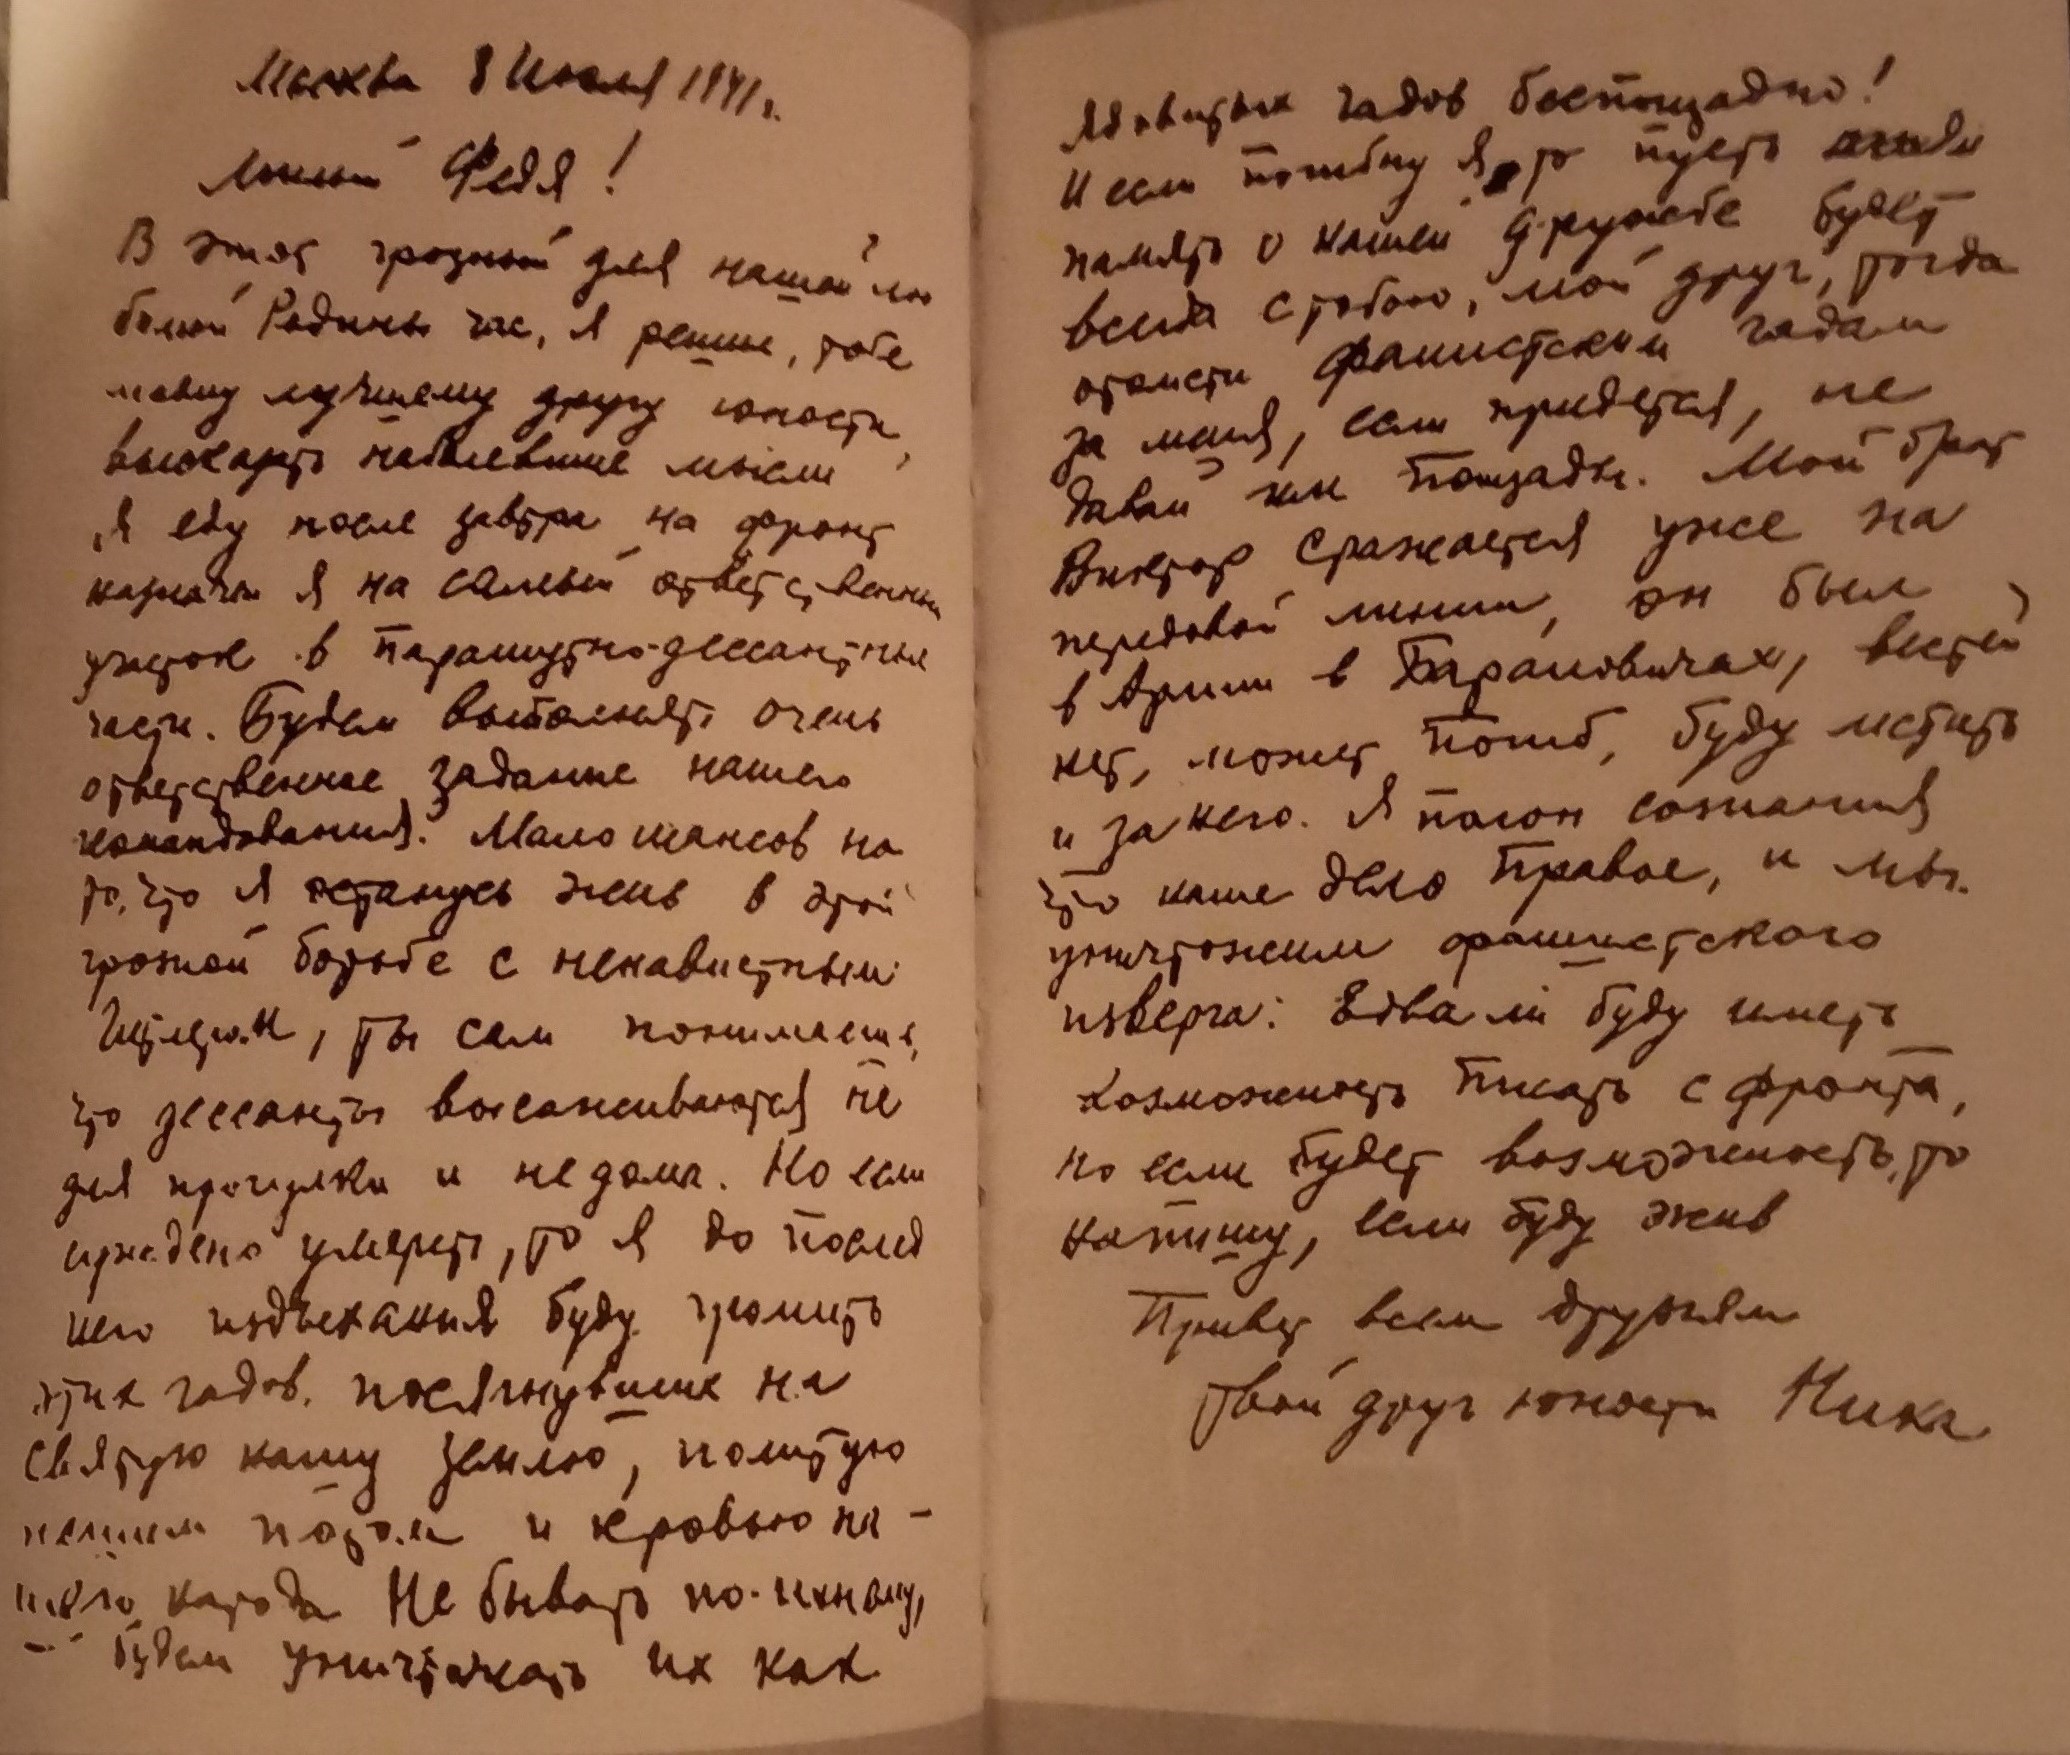 Москва 8 Июля 1941 г.
Милый Федя!
В этот грозный для нашей лю
бимой Родины час, я решил, тебе
моему лучшему другу юности,
высказать наболевшие мысли
Я еду после завтра на фронт
назначен я на самый ответственный
участок в парашутно-дессантные
части. Будем выполнять очень
ответственное задание нашего
командования. Мало шансов на
то, что я останусь жив в этой
грозной борьбе с ненавистным
Гитлером, ты сам понимаешь,
что дессанты высаживаются не
для прогулки и не дома. Но если
суждено умереть, то я до послед
него издыхания буду громить
этих гадов, посягнувших на
святую нашу землю, политую
нашим потом и кровью на-
шего народа Не бывать по-ихнему,
будем уничтожать их как
Ядовитых гадов беспощадно!
И если погибну я, то пусть
память о нашей дружбе будет
всегда с тобою, мой друг, тогда
отомсти фашистским гадам
за меня, если придется, не
давай им пощады. Мой брат
Виктор сражается уже на
передовой линии, он был
в Армии в Барановичах, вестей
нет, может погиб, буду мстить
и за него. Я полон сознания
что наше дело правое, и мы
уничтожим фашистского
изверга. Едва ли буду иметь
возможность писать с фронта,
но если будет возможность, то
напишу, если буду жив
Привет всем друзьям
Твой друг юности Ника